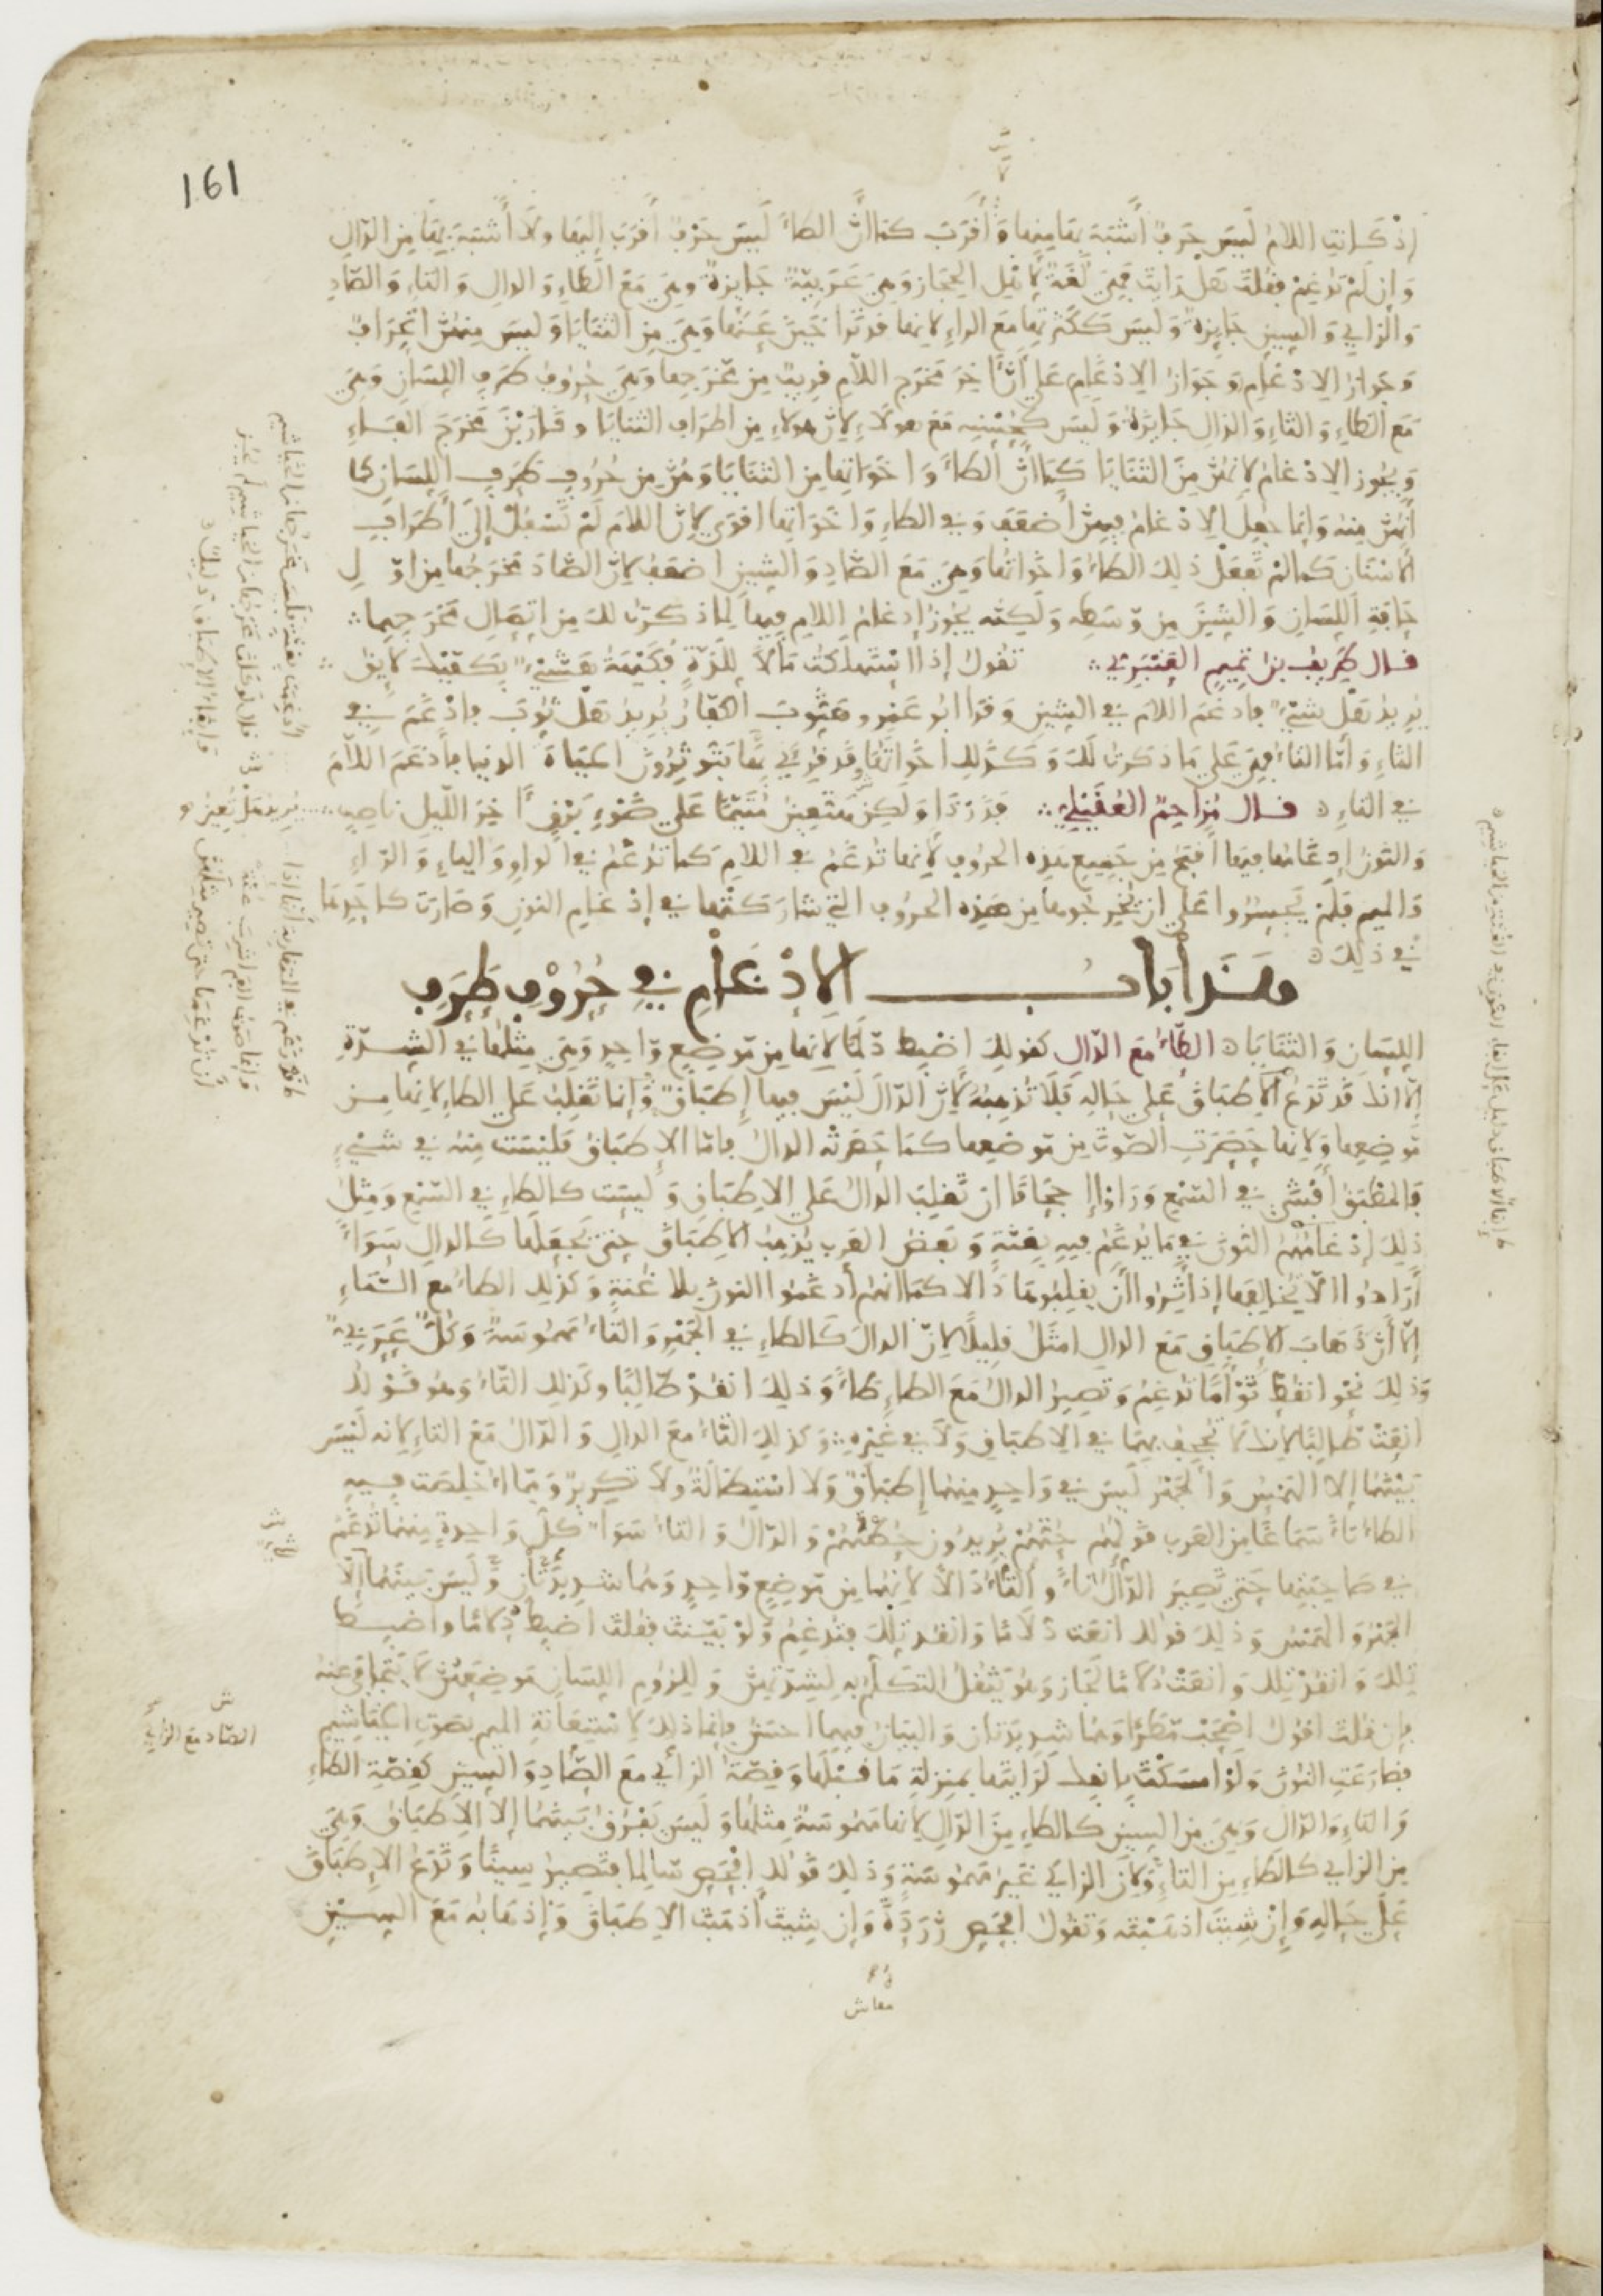 161
إذ كانت اللام ليس حرف أشبه بها منها و أقرب كما أن الطاء ليس حرف أقرب إليها ولا أشبه بها من الدال
وإن لم تدغم فقلت هل رأيت فهي لغة لأهل الحجاز وهي عربية جايزة وهي مع الطاء والدال والتاء والصاد
والزاي والسين جايزة وليس ككثرتها مع الراء لأنها قد تراخين عنها وهي من الثنايا وليس منهن انحراف
وجواز الإدغام وجواز الإدغام على أن آخر مخرج اللام قريب من مخرجها وهي حروف طرف اللسان وهي
مع الظاء والثاء والذال جايزة وليس كحسنه مع هولاء لأن هولاء من أطراف الثنايا وقاربن مخرج الفاء
ويجوز الإدغام لأنهن من الثنايا كما أن الطاء وأخواتها من الثنايا وهن من حروف طرف اللسان كما
أنهن منه وإنما جعل الإدغام فيهن أضعف وفي الطاء وأخواتها أقوى لأن اللام لم تسفل إلى أطراف
الأسنان كما لم تفعل ذلك الطاء وأخواتها وهي مع الضاد والشين أضعف لأن الضاد مخرجها من أول
حافة اللسان والشين من وسطه ولكنه يجوز إدغام اللام فيهما لما ذكرت لك من اتصال مخرجهما
قال طريف بن تميم العنبري تقول إذا استهلكت مالا للذة فكيهة هشيء بكفيك لايق
يريد هل شيء فأدغم اللام في الشين وقرأ أبو عمرو هثوب الكفار يريد هل ثوب فأدغم في
الثاء وأما التاء فهي على ما ذكرت لك وكذلك أخواتها وقد قرئ بها بتوثرون الحياة الدنيا فأدغم اللام
في التاء قال مزاحم العقيلي فدع ذا ولكن هتعين متيما على ضوء برق آخر الليل ناصب يريد هل تعين
والنون إدغامها فيها أقبح من جميع هذه الحروف لأنها تدغم في اللام كما تدغم في الواو والياء والراء
والميم فلم يجسروا على أن يخرجوها من هذه الحروف التي شاركتها في إدغام النون وصارت كأحدها
في ذلك
هذا باب الإدغام في حروف طرف
اللسان والثنايا الطاء مع الدال كقولك اضبط دلما لأنها من موضع واحد وهي مثلها في الشدة
إلا أنك قد تدع الإطباق على حاله فلا تذهبه لأن الدال ليس فيها إطباق وإنما تغلب على الطاء لأنها من
موضعها ولأنها حصرت الصوت من موضعها كما حصرته الدال فأما الإطباق فليست منه في شيء
فالمطبق أفشى في السمع ورأوا إجحافا أن تغلب الدال على الإطباق وليست كالطاء في السمع ومثل
ذلك إدغامهم النون في ما يدغم فيه بغنة وبعض العرب يذهب الإطباق حتى يجعلها كالدال سواء
أرادوا ألا يخالفها إذ آثروا أن يقلبوها دالا كما أنهم أدغموا النون بلا غنة وكذلك الطاء مع التاء
إلا أن ذهاب الإطباق مع الدال أمثل قليلا لأن الدال كالطاء في الجهر والتاء مهموسة وكل عربي
وذلك نحو انقط توأما تدغم وتصير الدال مع الطاء طاء وذلك انقد طالبا وكذلك التاء وهو قولك
انعت طالبا لأنك لا تجحف بهما في الإطباق ولا في غيره وكذلك التاء مع الدال والدال مع التاء لأنه ليس
بينهما إلا الهمس والجهر ليس في واحد منهما إطباق ولا استطالة ولا تكرير ومما أخلصت فيه
الطاء تاء سماعا من العرب قولهم حتهم يريدون حطتهم والدال والتاء سواء كل واحدة منهما تدغم
في صاحبتها حتى تصير الدال تاء والتاء دالا لأنهما من موضع واحد وهما شديدتان وليس بينهما إلا
الجهر والهمس وذلك قولك انعت دلاما وانقد تلك فتدغم ولو بينت فقلت اضبط دلاما واضبط
تلك وانقد تلك وانعت دلاما لجاز وهو يثقل التكلم به لشدتهن وللزوم اللسان موضعهن لا يتجافى عنه
فإن قلت أقول اصحب مطرا وهما شديدتان والبيان فيهما أحسن فإنما ذلك لاستعانة الميم بصوت الخياشيم
فضارعت النون ولو أمسكت بأنفك لرأيتها بمنزلة ما قبلها وقصة الزاي مع الصاد والسين كقصة الطاء
والتاء والدال وهي من السين كالطاء من الدال لأنها مهموسة مثلها وليس يفرق بينهما إلا الإطباق وهي
من الزاي كالطاء من التاء ولأن الزاي غير مهموسة وذلك قولك افحص سالما فتصير سينا وتدع الإطباق
على حاله وإن شيت أذهبته وتقول افحص زردة وإن شيت أذهبت الإطباق وإذهابه مع السين
الصاد مع الزاي